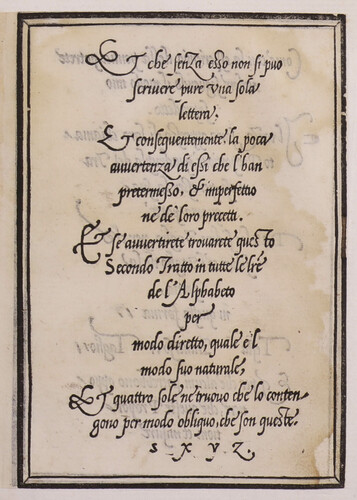 Et che senza esso non si puo
scrivere pure vna sola
lettera.
Et conseguentemente. la poca
auuertenza di essi che l'han
pretermesso, & imperfettio
ne de' loro precetti.
E se auuertirete trouarete questo
Secondo Tratto in tutte le lr̃e
de l'Alphabeto
per
modo diretto, quale è l
modo suo naturale,
Et quattro sole ne truouo che lo conten-
gono per modo obliquo, che son queste.
s . x . y . z .